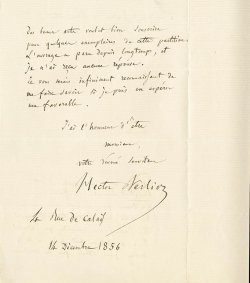 des beaux arts voulut bien souscrire
pour quelques exemplaires de cette partition.
L'ouvrage a paru depuis longtemps, et
je n'ai reçu aucune réponse.
Je vous serais infiniment reconnaissant de
me faire savoir si je puis en espérer
une favorable.
J'ai l'honneur d'être
monsieur,
votre dévoué serviteur
Hector Berlioz
Rue de Calais
14 Décembre 1856